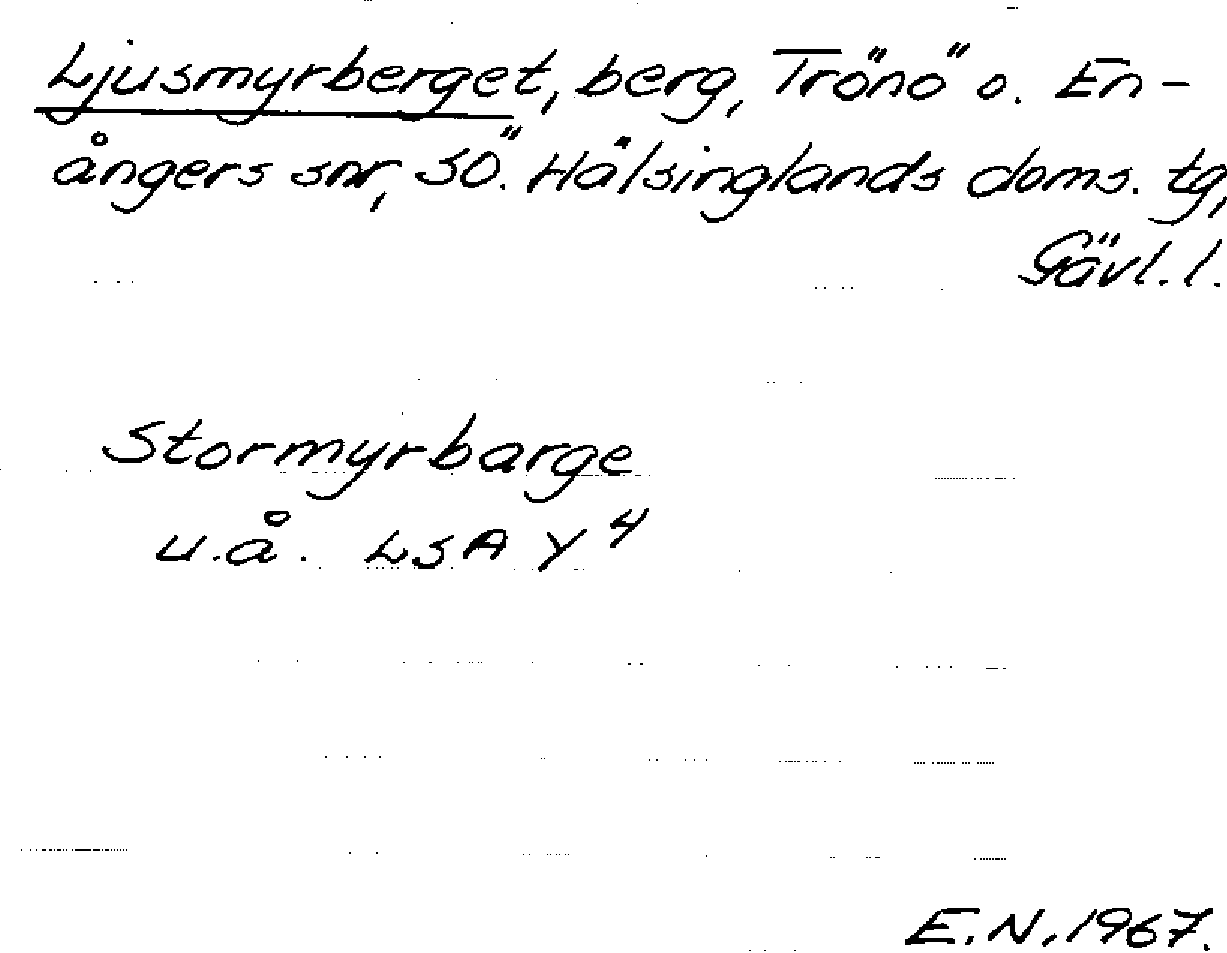 Ljusmyrberget, berg, Trönö o. En-
ångers snr, SÖ. Hälsinglands doms. tg,
Gävl. l.
Stormyrbarge
u.å. LSA Y⁴
E.N. 1967.